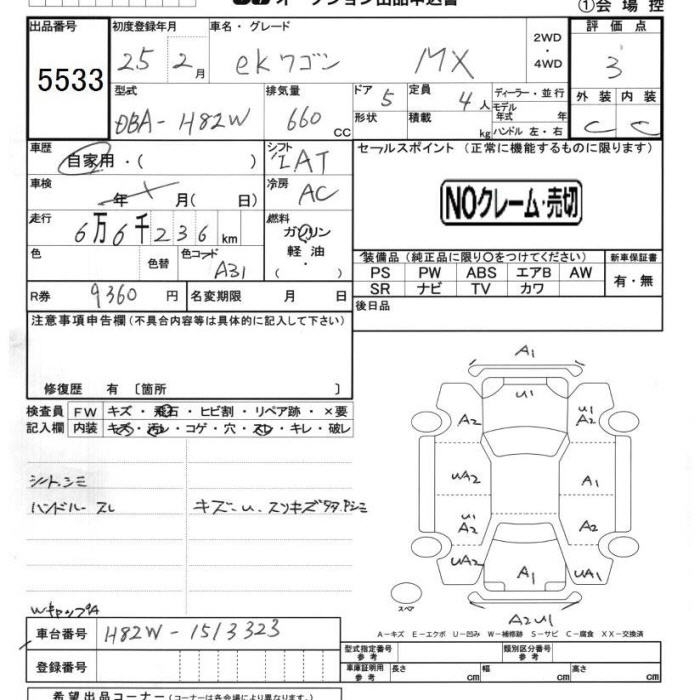 オークション出品申込書
①会場控
出品番号 初度登録年月 車名・グレード 2WD・4WD 評価点
5533 25 2月 ekワゴン MX 3
型式 排気量 ドア 5 定員 4人 ディーラー・並行 外装 内装
DBA-H82W 660cc 形状 積載 kg モデル年式 年 ハンドル 左・右 C C
車歴 シフト セールスポイント (正常に機能するものに限ります)
自家用・( ) IAT
車検 年 月( 日) 冷房 AC NOクレーム・売切
走行 6万6千236km 燃料 ガソリン
軽油
・( )
色 色替 色コード A31 装備品(純正品に限り○をつけてください) 新車保証書
PS PW ABS エアB AW 有・無
SR ナビ TV カワ
R券 9360円 名変期限 月 日 後日品
注意事項申告欄(不具合内容等は具体的に記入して下さい)
修復歴 有 〔箇所 〕
検査員 FW キズ・飛石・ヒビ割・リペア跡・×要
記入欄 内装 キズ・汚レ・コゲ・穴・スレ・キレ・破レ
シート.シミ
ハンドルースレ キズ-u.スリキズタタ.Pシミ
WキャップA
A1
U1
A2 U1 A2
UA2 A1
U1 A2 A2
UA2 A1 UA1
スペア A2U1
A-キズ E-エクボ U-凹み W-補修跡 S-サビ C-腐食 XX-交換済
車台番号 H82W-1513323
型式指定番号 参考 類別区分番号 参考
登録番号 車庫証明用 参考 長さ cm 幅 cm 高さ cm
希望出品コーナー(コーナーは各会場により異なります。)